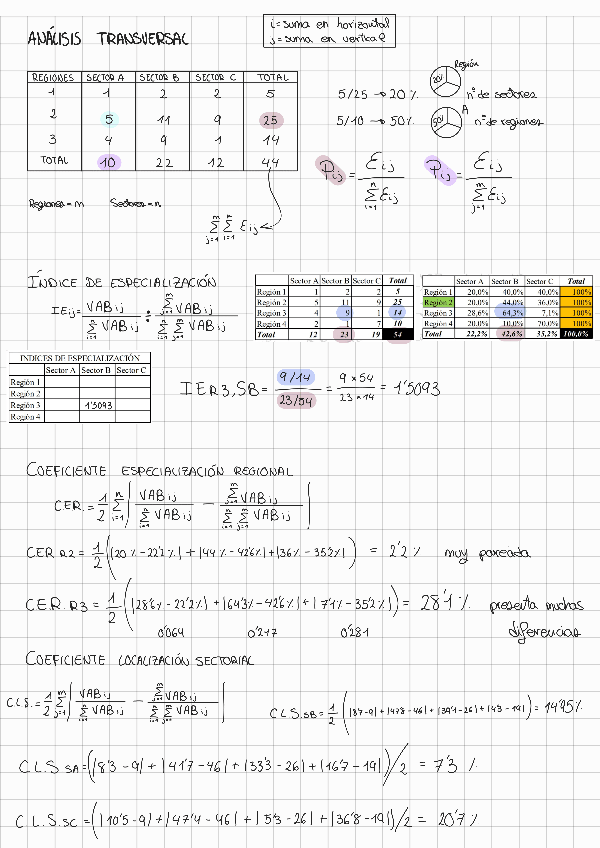 i = suma en horizontal
j = suma en vertical
ANÁLISIS TRANSVERSAL
REGIONES SECTOR A SECTOR B SECTOR C TOTAL
1 1 2 2 5
2 5 11 9 25
3 4 9 1 14
TOTAL 10 22 12 44
Región
20%
5/25 → 20% nº de sectores
A
50%
5/10 → 50% nº de regiones
Pij = Eij / Σ(i=1, n) Eij
Pij = Eij / Σ(j=1, m) Eij
Regiones = m Sectores = n
Σ(j=1, m) Σ(i=1, n) Eij
ÍNDICE DE ESPECIALIZACIÓN
IEij = VABij / Σ(i=1, n) VABij : Σ(j=1, m) VABij / Σ(i=1, n) Σ(j=1, m) VABij
Sector A Sector B Sector C Total
Región 1 1 2 2 5
Región 2 5 11 9 25
Región 3 4 9 1 14
Región 4 2 1 7 10
Total 12 23 19 54
Sector A Sector B Sector C Total
Región 1 20,0% 40,0% 40,0% 100%
Región 2 20,0% 44,0% 36,0% 100%
Región 3 28,6% 64,3% 7,1% 100%
Región 4 20,0% 10,0% 70,0% 100%
Total 22,2% 42,6% 35,2% 100,0%
INDICES DE ESPECIALIZACIÓN
Sector A Sector B Sector C
Región 1
Región 2
Región 3 1'5093
Región 4
IER3,SB = 9/14 / 23/54 = 9 × 54 / 23 × 14 = 1'5093
COEFICIENTE ESPECIALIZACIÓN REGIONAL
CER. = 1/2 Σ(i=1, n) | VABij / Σ(i=1, n) VABij − Σ(j=1, m) VABij / Σ(i=1, n) Σ(j=1, m) VABij |
CER R2 = 1/2 (|20% - 22'2%| + |44% - 42'6%| + |36% - 35'2%|) = 2'2% muy pareada
C.E.R. R3 = 1/2 (|28'6% - 22'2%| + |64'3% - 42'6%| + |7'1% - 35'2%|) = 28'1% presenta muchas
0'064 0'217 0'281 diferencias
COEFICIENTE LOCALIZACIÓN SECTORIAL
C.L.S. = 1/2 Σ(j=1, m) | VABij / Σ(j=1, m) VABij − Σ(i=1, n) VABij / Σ(i=1, n) Σ(j=1, m) VABij |
C.L.S. SB = 1/2 (|8'7-9| + |47'8-46| + |39'1-26| + |4'3-19|) = 14'95%
C.L.S SA = (|8'3 - 9| + |41'7 - 46| + |33'3 - 26| + |16'7 - 19|)/2 = 7'3 %
C.L.S.SC = (|10'5 - 9| + |47'4 - 46| + |5'3 - 26| + |36'8 - 19|)/2 = 20'7 %